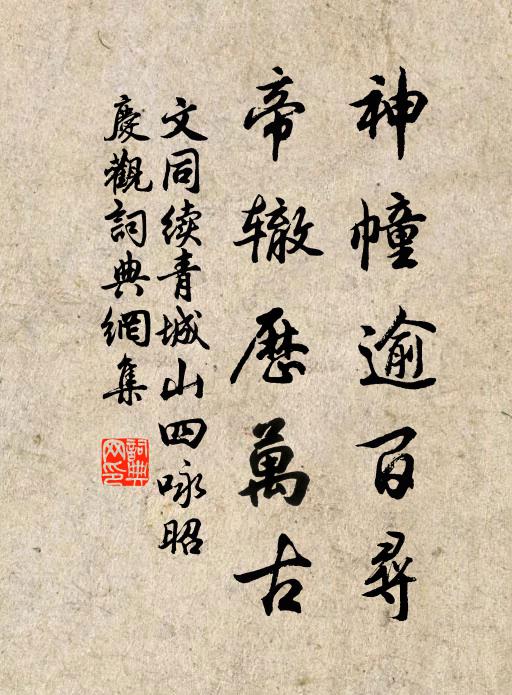 神幢逾百尋
帝辙歷萬古
文同续青城山四咏昭
慶觀詞典網集
詞典网印